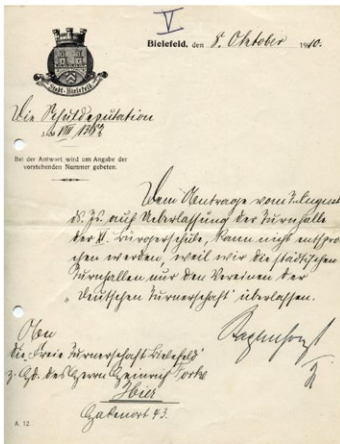 V
Bielefeld, den 8. Oktober 1910.
Stadt Bielefeld
Die Schuldeputation
VIII
Bei der Antwort wird um Angabe der
vorstehenden Nummer gebeten.
Dem Antrage vom 7. August
ds. Js. auf Ueberlassung der Turnhalle
der VI. Bürgerschule, kann nicht entspro-
chen werden, weil wir die städtischen
Turnhallen nur den Vereinen der
"Deutschen Turnerschaft" überlassen.
An
die "Freie Turnerschaft Bielefeld"
z. Hd. des Herrn Heinrich
Hier
43.
A. 12.